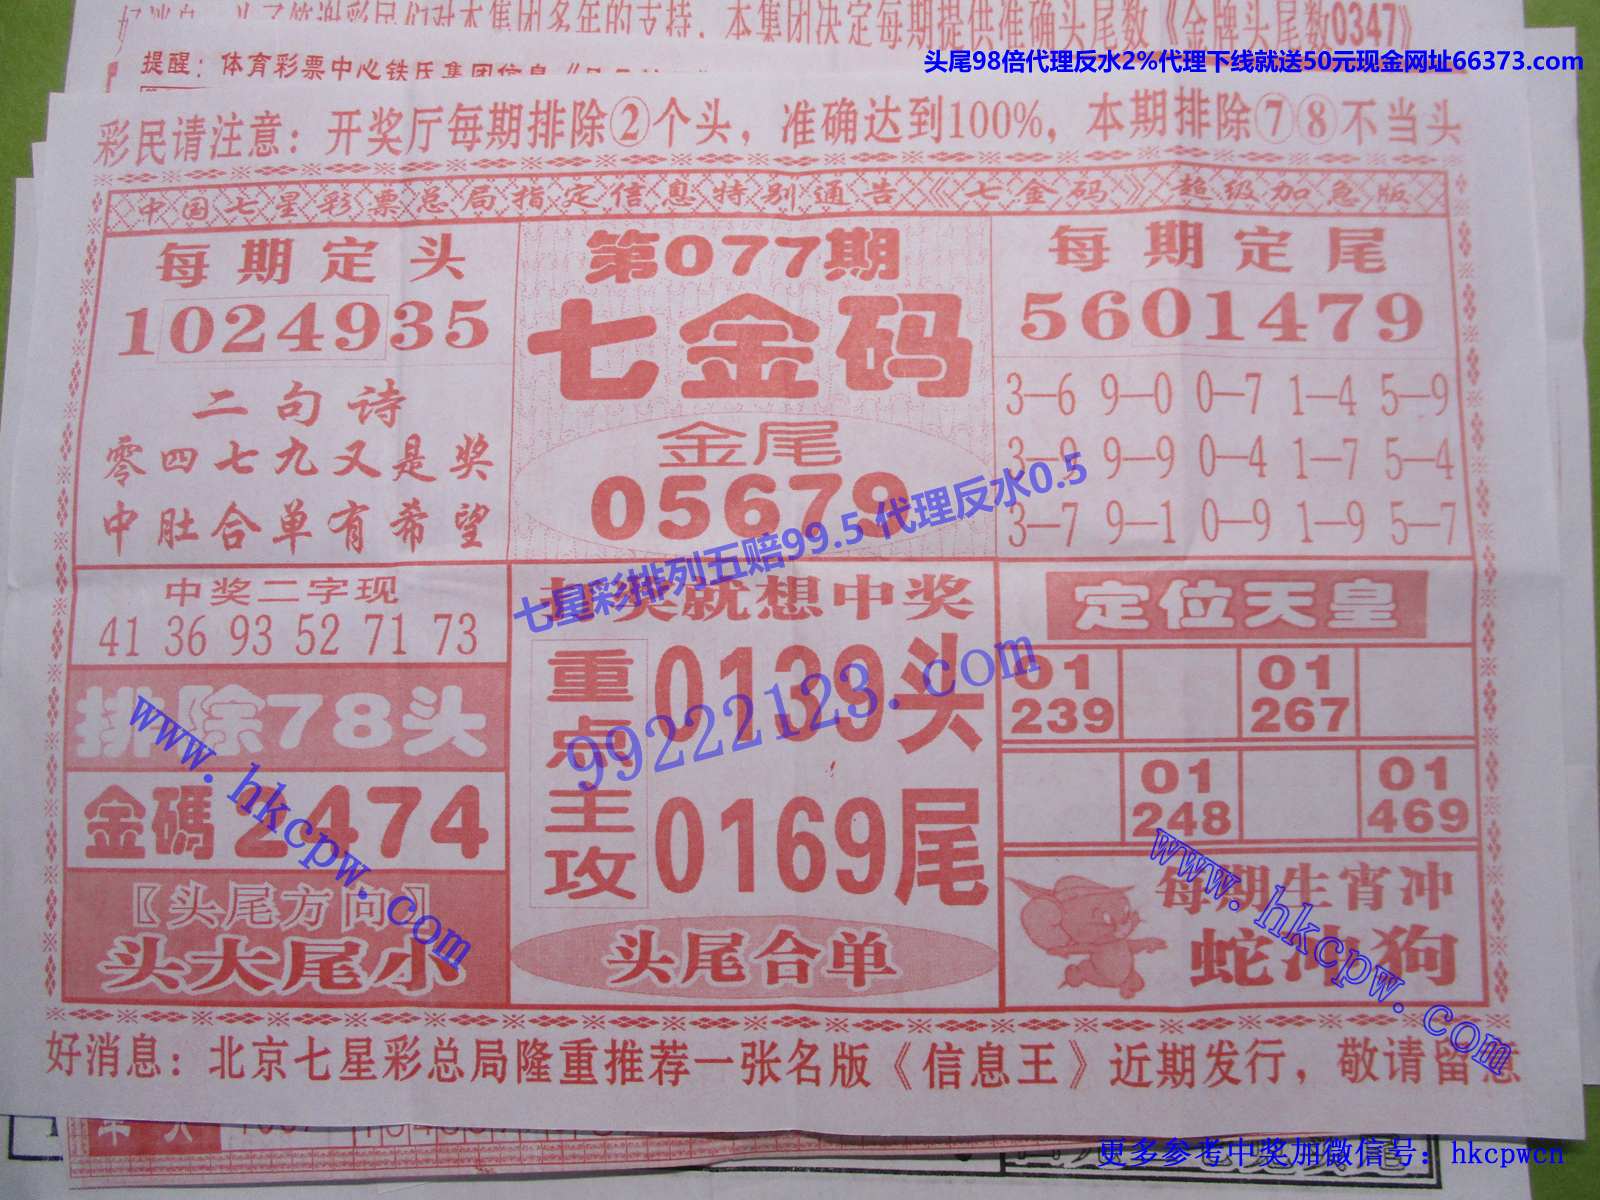 本集团决定每期提供准确头尾数《金牌头尾数0347》
头尾98倍代理反水2%代理下线就送50元现金网址66373.com
提醒：体育彩票中心铁氏集团信息
彩民请注意：开奖厅每期排除②个头，准确达到100%，本期排除⑦⑧不当头
中国七星彩票总局指定信息特别通告《七金码》超级加急版
每期定头
1024935
二句诗
零四七九又是奖
中肚合单有希望
第077期
七金码
金尾
05679
每期定尾
5601479
3—6 9—0 0—7 1—4 5—9
3—9 9—9 0—4 1—7 5—4
3—7 9—1 0—9 1—9 5—7
七星彩排列五赔99.5 代理反水0.5
中奖二字现
41 36 93 52 71 73
排除78头
金碼2474
〖头尾方向〗
头大尾小
就想中奖
重点主攻
0139头
0169尾
头尾合单
99222123.com
定位天皇
01 239
01 267
01 248
01 469
每期生宵冲
蛇冲狗
www.hkcpw.com
www.hkcpw.com
好消息：北京七星彩总局隆重推荐一张名版《信息王》近期发行，敬请留意
更多参考中奖加微信号：hkcpwcn